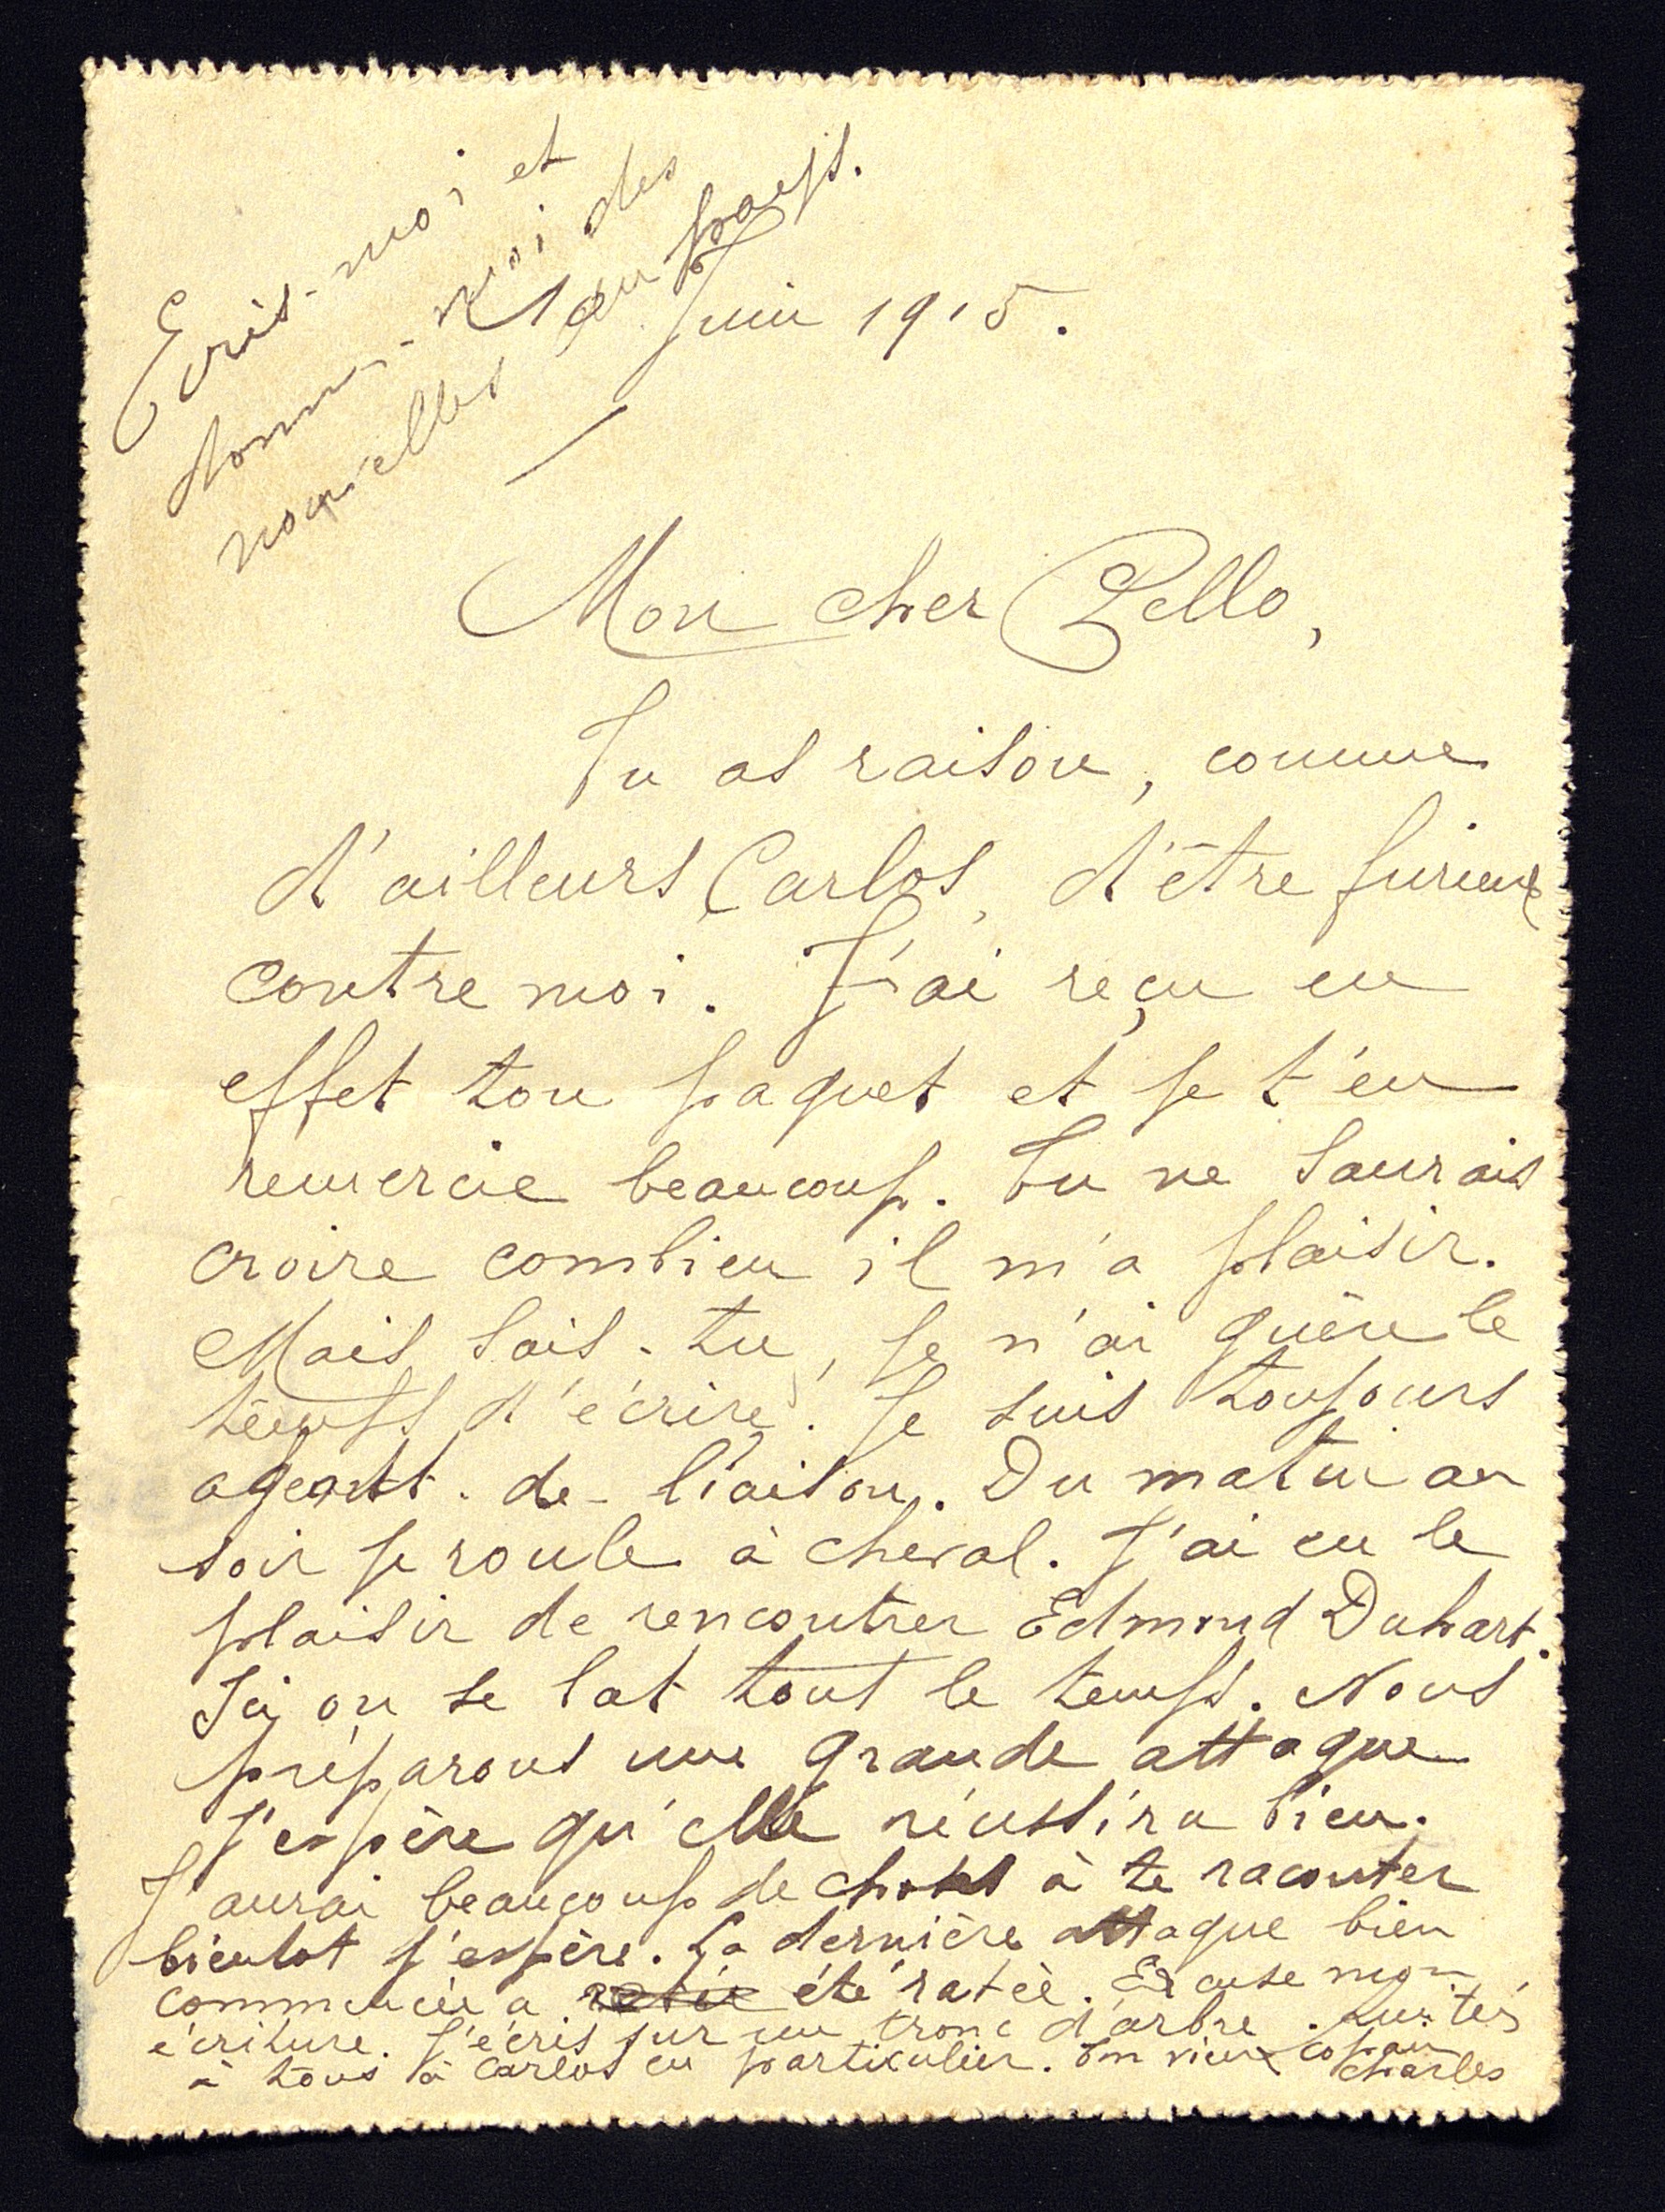 Ecris-moi et
donne-moi des
nouvelles du pays.
Juin 1915.
Mon cher Pello,
Tu as raison, comme
d'ailleurs Carlos, d'être furieux
contre moi. J'ai reçu en
effet ton paquet et je t'en
remercie beaucoup. Tu ne saurais
croire combien il m'a plaisir.
Mais sais-tu, je n'ai guère le
temps d'écrire. Je suis toujours
agent-de-liaison. Du matin au
soir je roule à cheval. J'ai eu le
plaisir de rencontrer Edmond Duhart.
Ici on se bat tout le temps. Nous
préparons une grande attaque
j'espère qu'elle réussira bien.
J'aurai beaucoup de choses à te raconter
bientot j'espère. La dernière attaque bien
commencée a été ratée. Excuse mon
écriture. J'écris sur un tronc d'arbre.
à tous à Carlos en particulier. Ton vieux copain
Charles